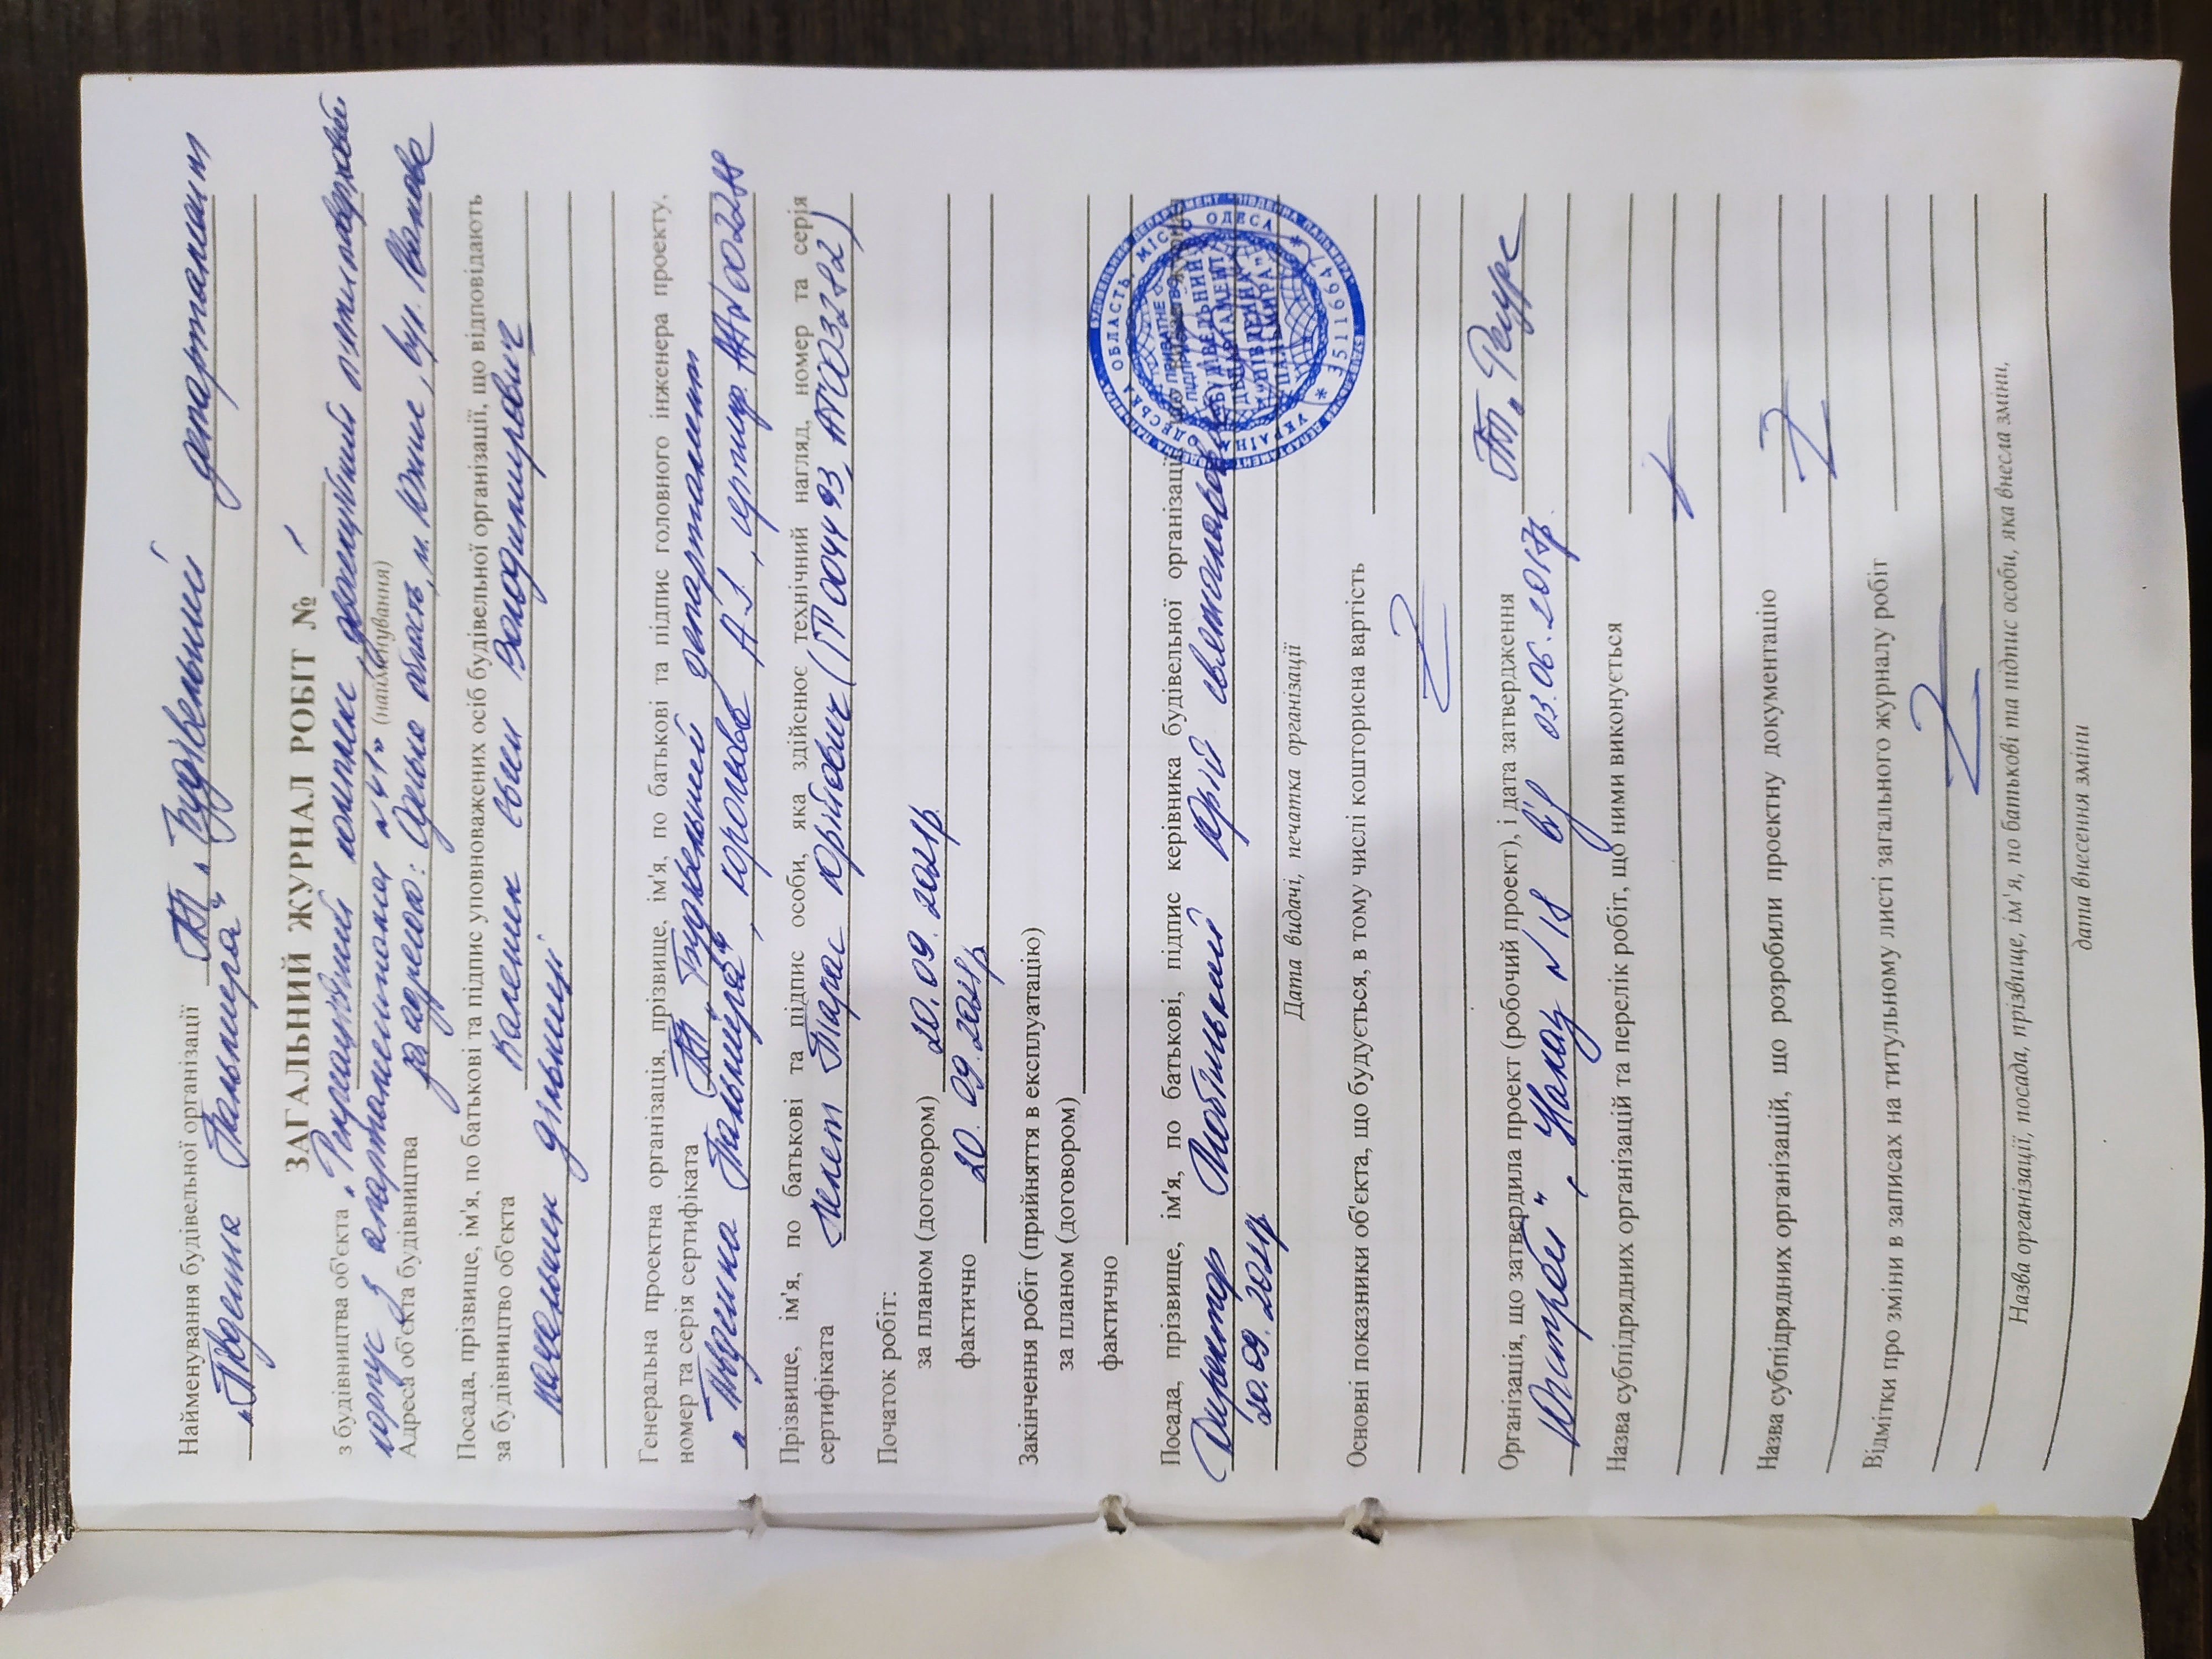 Найменування будівельної організації ПП „Будівельний департамент
„Південна Пальміра“
ЗАГАЛЬНИЙ ЖУРНАЛ РОБІТ № 1
з будівництва об'єкта „Рекреаційний комплекс, двосекційний
корпус з апартаментами №41" (найменування)
Адреса об'єкта будівництва за адресою: Одеська область, м. Южне, вул.
Посада, прізвище, ім'я, по батькові та підпис уповноважених осіб будівельної організації, що відповідають
за будівництво об'єкта Каленик Євген Володимирович
начальник дільниці
Генеральна проектна організація, прізвище, ім'я, по батькові та підпис головного інженера проекту,
номер та серія сертифіката ПП „Будівельний департамент
„Південна Пальміра“, Корольова А.І., сертиф.
Прізвище, ім'я, по батькові та підпис особи, яка здійснює технічний нагляд, номер та серія
сертифіката Тарас Юрійович (ІТ 004493, АТ003282)
Початок робіт:
за планом (договором) 20.09.2021р.
фактично 20.09.2021р.
Закінчення робіт (прийняття в експлуатацію)
за планом (договором)
фактично
Посада, прізвище, ім'я, по батькові, підпис керівника будівельної організації,
Директор Юрій
20.09.2021р
Дата видачі, печатка організації
УКРАЇНА ОДЕСЬКА ОБЛАСТЬ МІСТО ОДЕСА
ПРИВАТНЕ
"БУДІВЕЛЬНИЙ
ДЕПАРТАМЕНТ
"ПІВДЕННА
ПАЛЬМІРА"
35119647
Основні показники об'єкта, що будується, в тому числі кошторисна вартість
Організація, що затвердила проект (робочий проект), і дата затвердження ПП „Ресурс
Юнітребі“, Наказ №18 від 03.06.2017р.
Назва субпідрядних організацій та перелік робіт, що ними виконується
Назва субпідрядних організацій, що розробили проектну документацію
Відмітки про зміни в записах на титульному листі загального журналу робіт
Назва організації, посада, прізвище, ім'я, по батькові та підпис особи, яка внесла зміни,
дата внесення зміни